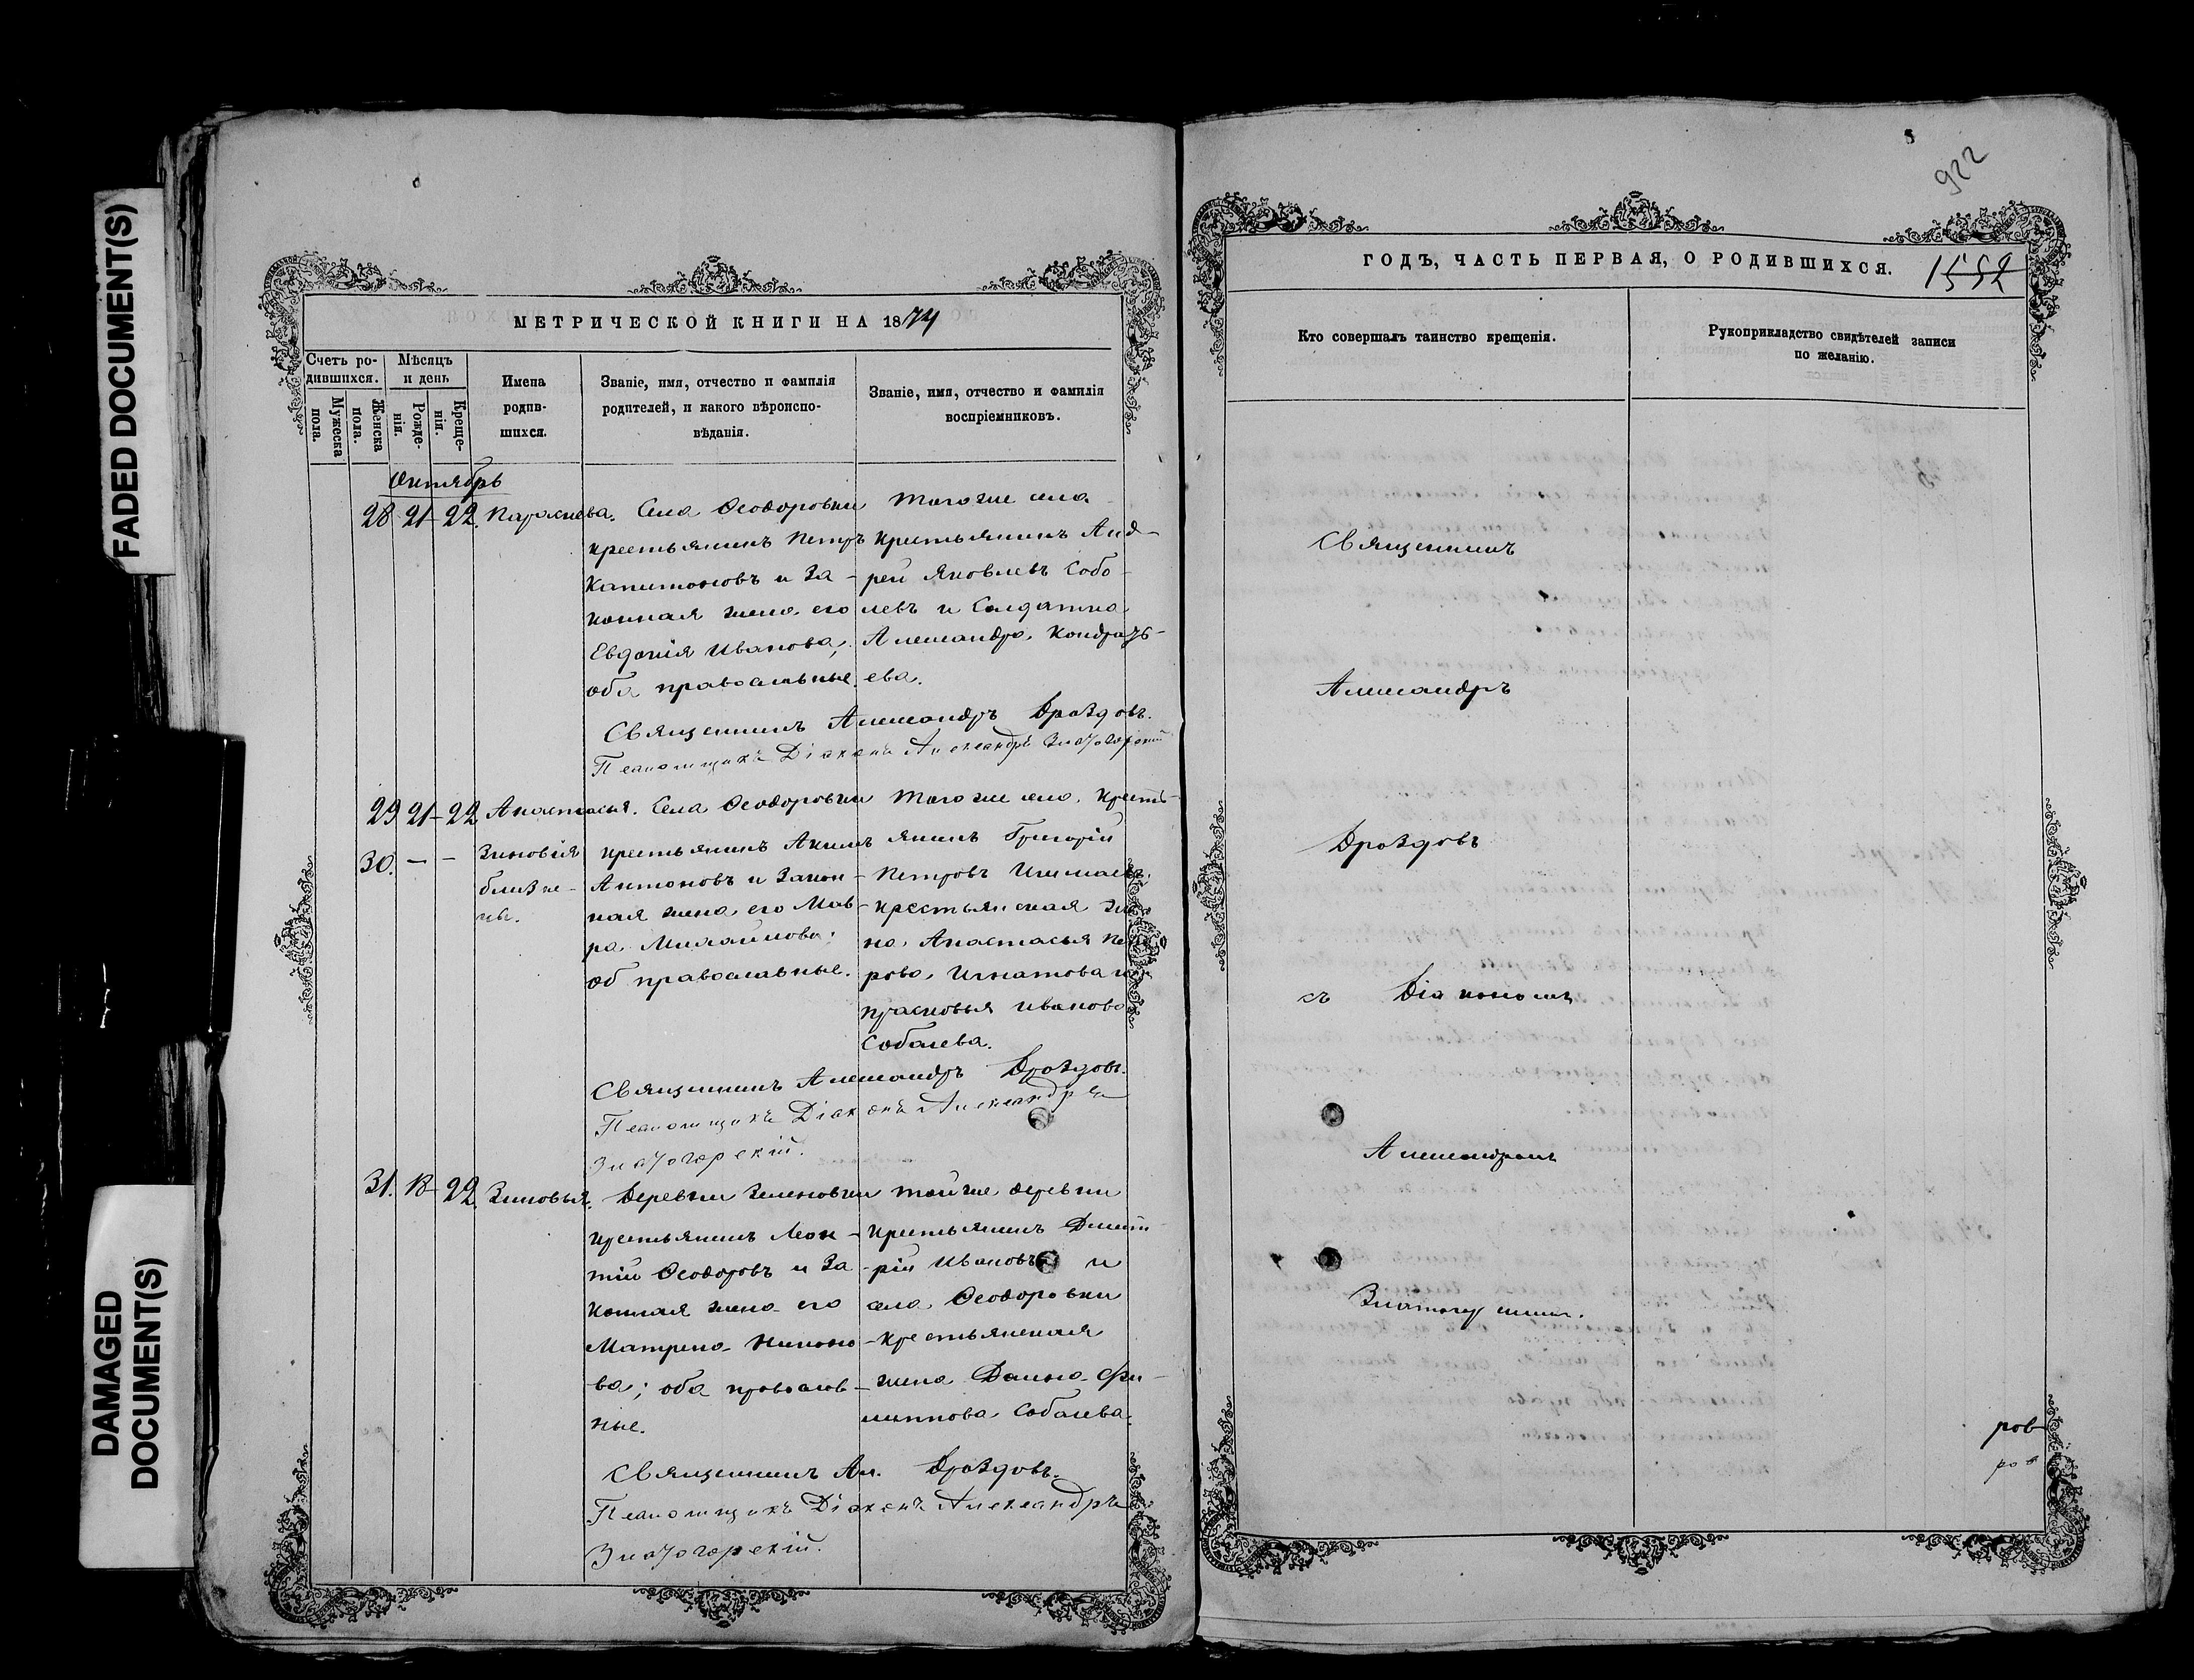 FADED DOCUMENT(S)
DAMAGED
DOCUMENT(S)
МЕТРИЧЕСКОЙ КНИГИ НА 1874
Счетъ ро-
дившихся.
Мужеска
пола.
Женска
пола.
Мѣсяцъ
и день
Рожде-
нія.
Креще-
нія.
Имена
родив-
шихся.
Званіе, имя, отчество и фамилія
родителей, и какого вѣроиспо-
вѣданія.
Званіе, имя, отчество и фамилія
воспріемниковъ.
Октябрь
28 21-22. Параскева. Села Ѳеодоровки
крестьянинъ Петръ
Капитоновъ и за-
конная жена его
Евдокія Иванова,
оба православные.
Того же села
крестьянинъ Анд-
рей Яковлевъ Собо-
левъ и Солдатка
Александра Кондрать-
ева.
Священникъ Александръ Дроздовъ.
Псаломщикъ Діаконъ Александръ Златогорскій
29 21-22 Анастасья. Села Ѳеодоровки
30. - - Зиновія
близне-
цы.
крестьянинъ Акимъ
Антоновъ и закон-
ная жена его Мав-
ра Михайлова;
об православные.
Того же села, кресть-
янинъ Григорій
Петровъ
крестьянская же
на Анастасья Пет
рова Игнатова и
Прасковья Иванова
Собалева.
Священникъ Александръ Дроздовъ.
Псаломщикъ Діаконъ Александръ
Златогорскій.
31. 18-22. Зиновья. Деревни Зеленовки
крестьянинъ Леон-
тій Ѳеодоровъ и за-
конная жена его
Матрена Никоно-
ва; оба православ-
ные.
той же деревни
крестьянинъ Дмит-
рій Ивановъ и
села Ѳеодоровки
крестьянская
жена Домна Фи-
липпова Собалева.
Священникъ Ал. Дроздовъ.
Псаломщикъ Діаконъ Александръ
Златогорскій.
922
ГОДЪ, ЧАСТЬ ПЕРВАЯ, О РОДИВШИХСЯ. 1552
Кто совершалъ таинство крещенія.
Рукоприкладство свидѣтелей записи
по желанію.
Священникъ
Александръ
Дроздовъ
съ Діакономъ
Александромъ
Златогорскимъ.
ров
ров